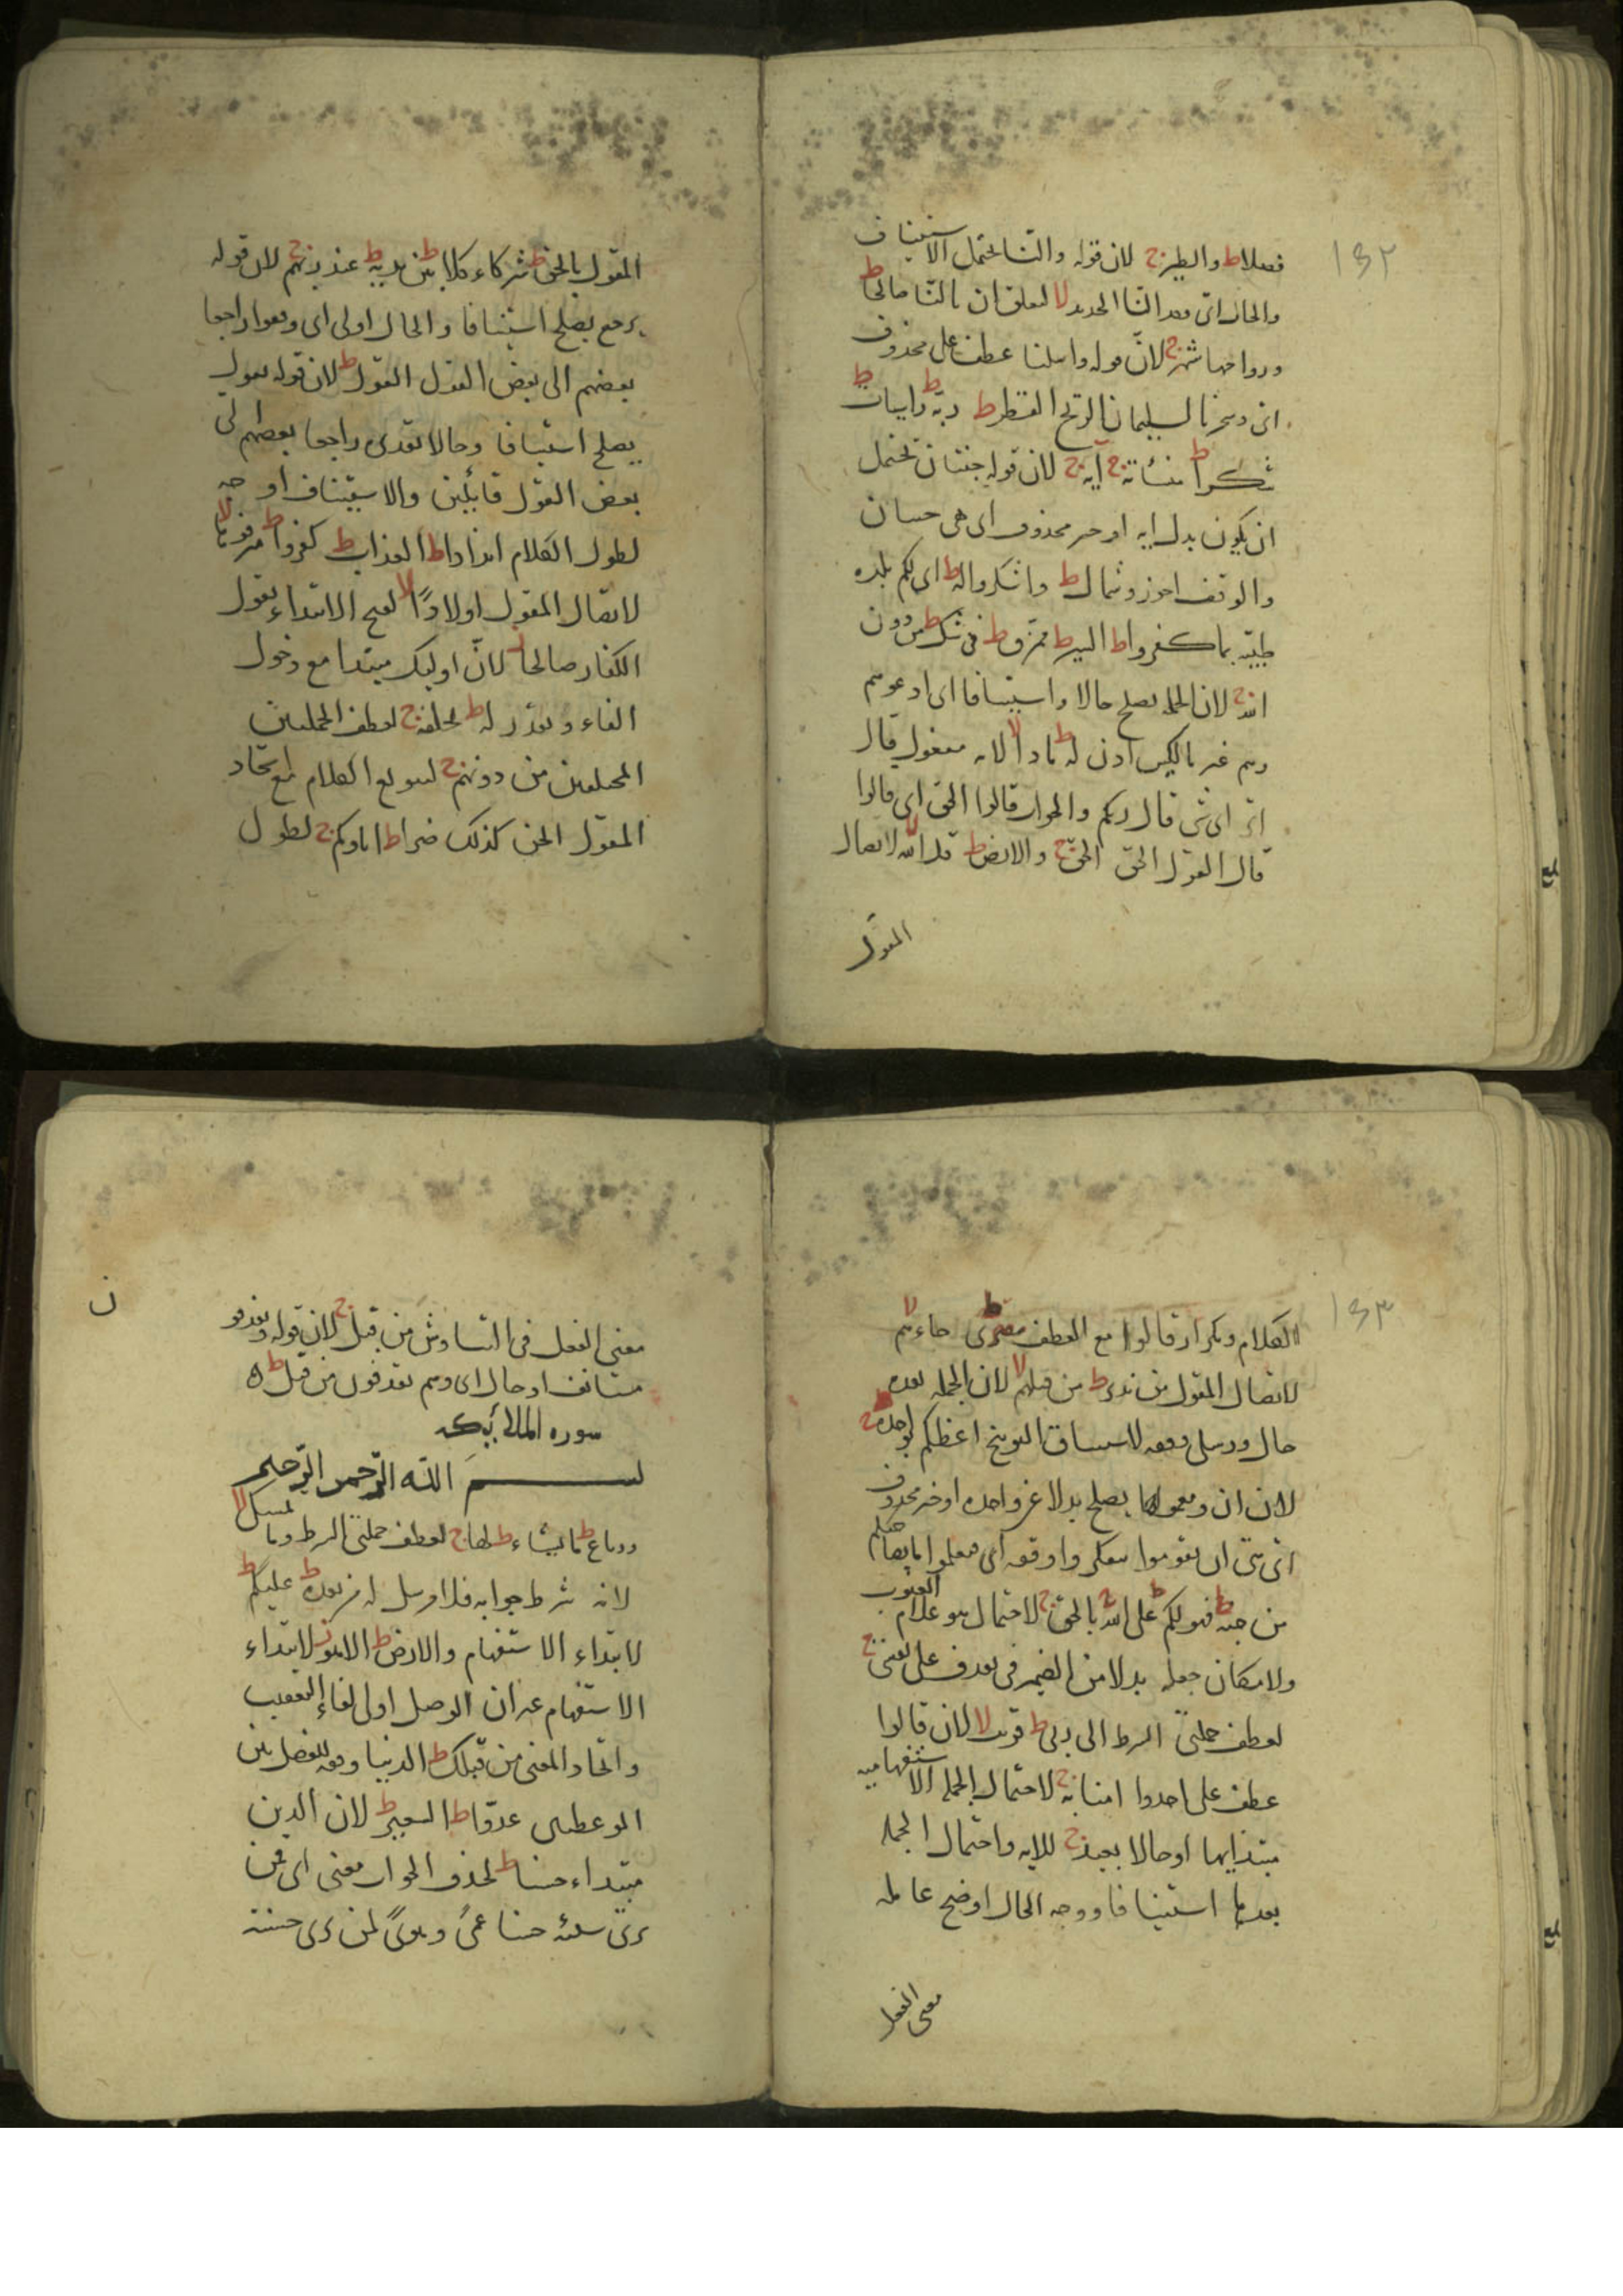 ١٥٢
فضلا ط والطير ج لان قوله والنا يحتمل الاستيناف
والحال اى وقد النا الحديد لا لتعلق ان بالنا صالحا ط
ورواحها شهر ج لانّ قوله واسلنا عطف على محذوف
اى وسخرنا لسليمان الريح القطر ط ربه ط راسيات ط
شكرا ط منسأته ج آية ج لان قوله جنتان تحتمل
ان يكون بدل اية او خبر محذوف اى هى جنتان
والوقف اجوز وشمال ط واشكروا له ط اى لكم بلدة
طيبة بما كفروا ط السير ط ممزق ط فى شك ط من دون
الله ج لان الجملة يصلح حالا واستينافا اى ادعوهم
وهم غير مالكين اذن له ط ماذا لا لانه مفعول قال
اى اى شى قال ربكم والجواب قالوا الحق اى قالوا
قال القول الحق الحق ج والارض ط قل الله لا لاتصال
المقول
المقول بالحق ط شركاء كلا ط بين يديه ط عند ربهم ج لان قوله
يرجع يصلح استينافا والحال اولى اى وقفوا راجعا
بعضهم الى بعض القول القول ط لان قوله يقول
يصلح استينافا وحالا تقديره راجعا بعضهم الى
بعض القول قائلين والاستيناف اوجه
لطول الكلام اندادا ط العذاب ط كفروا ط مترفوها لا
لاتصال المقول اولادًا لا لقبح الابتداء بقول
الكفار صالحا ز لانّ اوليك مبتدا مع دخول
الفاء ويقدر له ط يخلفه ج لعطف الجملتين
المختلفتين من دونهم ج لتنوع الكلام مع اتحاد
المقول الجن كذلك ضرا ط اباوكم ج لطول
١٥٣
الكلام وتكرار قالوا مع العطف مفترى ط جاءهم لا
لاتصال المقول من نذير ط من قبلهم لا لان الجملة بعده
حال ورسلى وقفه لاستيناف التوبيخ اعظكم بواحدة ج
لان ان ومعمولها يصلح بدلا عن واحدة او خبر محذوف
اى هى ان تقوموا تتفكروا وقفه اى فتعلموا ما بصاحبكم
من جنة ط فهو لكم ط على الله ج بالحق ج لاحتمال هو علام الغيوب
ولامكان جعله بدلا من الضمير فى يقذف على نفسى ج
لعطف جملتى الشرط الى ربى ط قريب لا لان قالوا
عطف على اخذوا امنا به ج لاحتمال الجملة الاستفهامية
مبتدا بها او حالا بعيد ج للاية واحتمال الجملة
بعدها استينافا ووجه الحال اوضح عامله
معنى الفعل
معنى الفعل فى التناوش من قبل ج لان قوله ويقذفون
مستانف او حال اى وهم يقذفون من قبل ط ه
سورة الملائكة
بسم الله الرّحمن الرّحيم
ورباع ط ما يشاء ط لها ج لعطف جملتى الشرط وما يمسك لا
لانه شرط جوابه فلا مرسل له من بعده ط عليكم ط
لابتداء الاستفهام والارض ط الا هو ز لابتداء
الاستفهام غير ان الوصل اولى لفاء التعقيب
واتحاد المعنى من قبلك ط الدنيا وقفه للفصل بين
الموعظتين عدوّا ط السعير ط لان الذين
مبتداء حسنا ط لحذف الجواب معنى اى فمن
رى سيئه حسنا عمًى وهوىً لمن رى حسنة